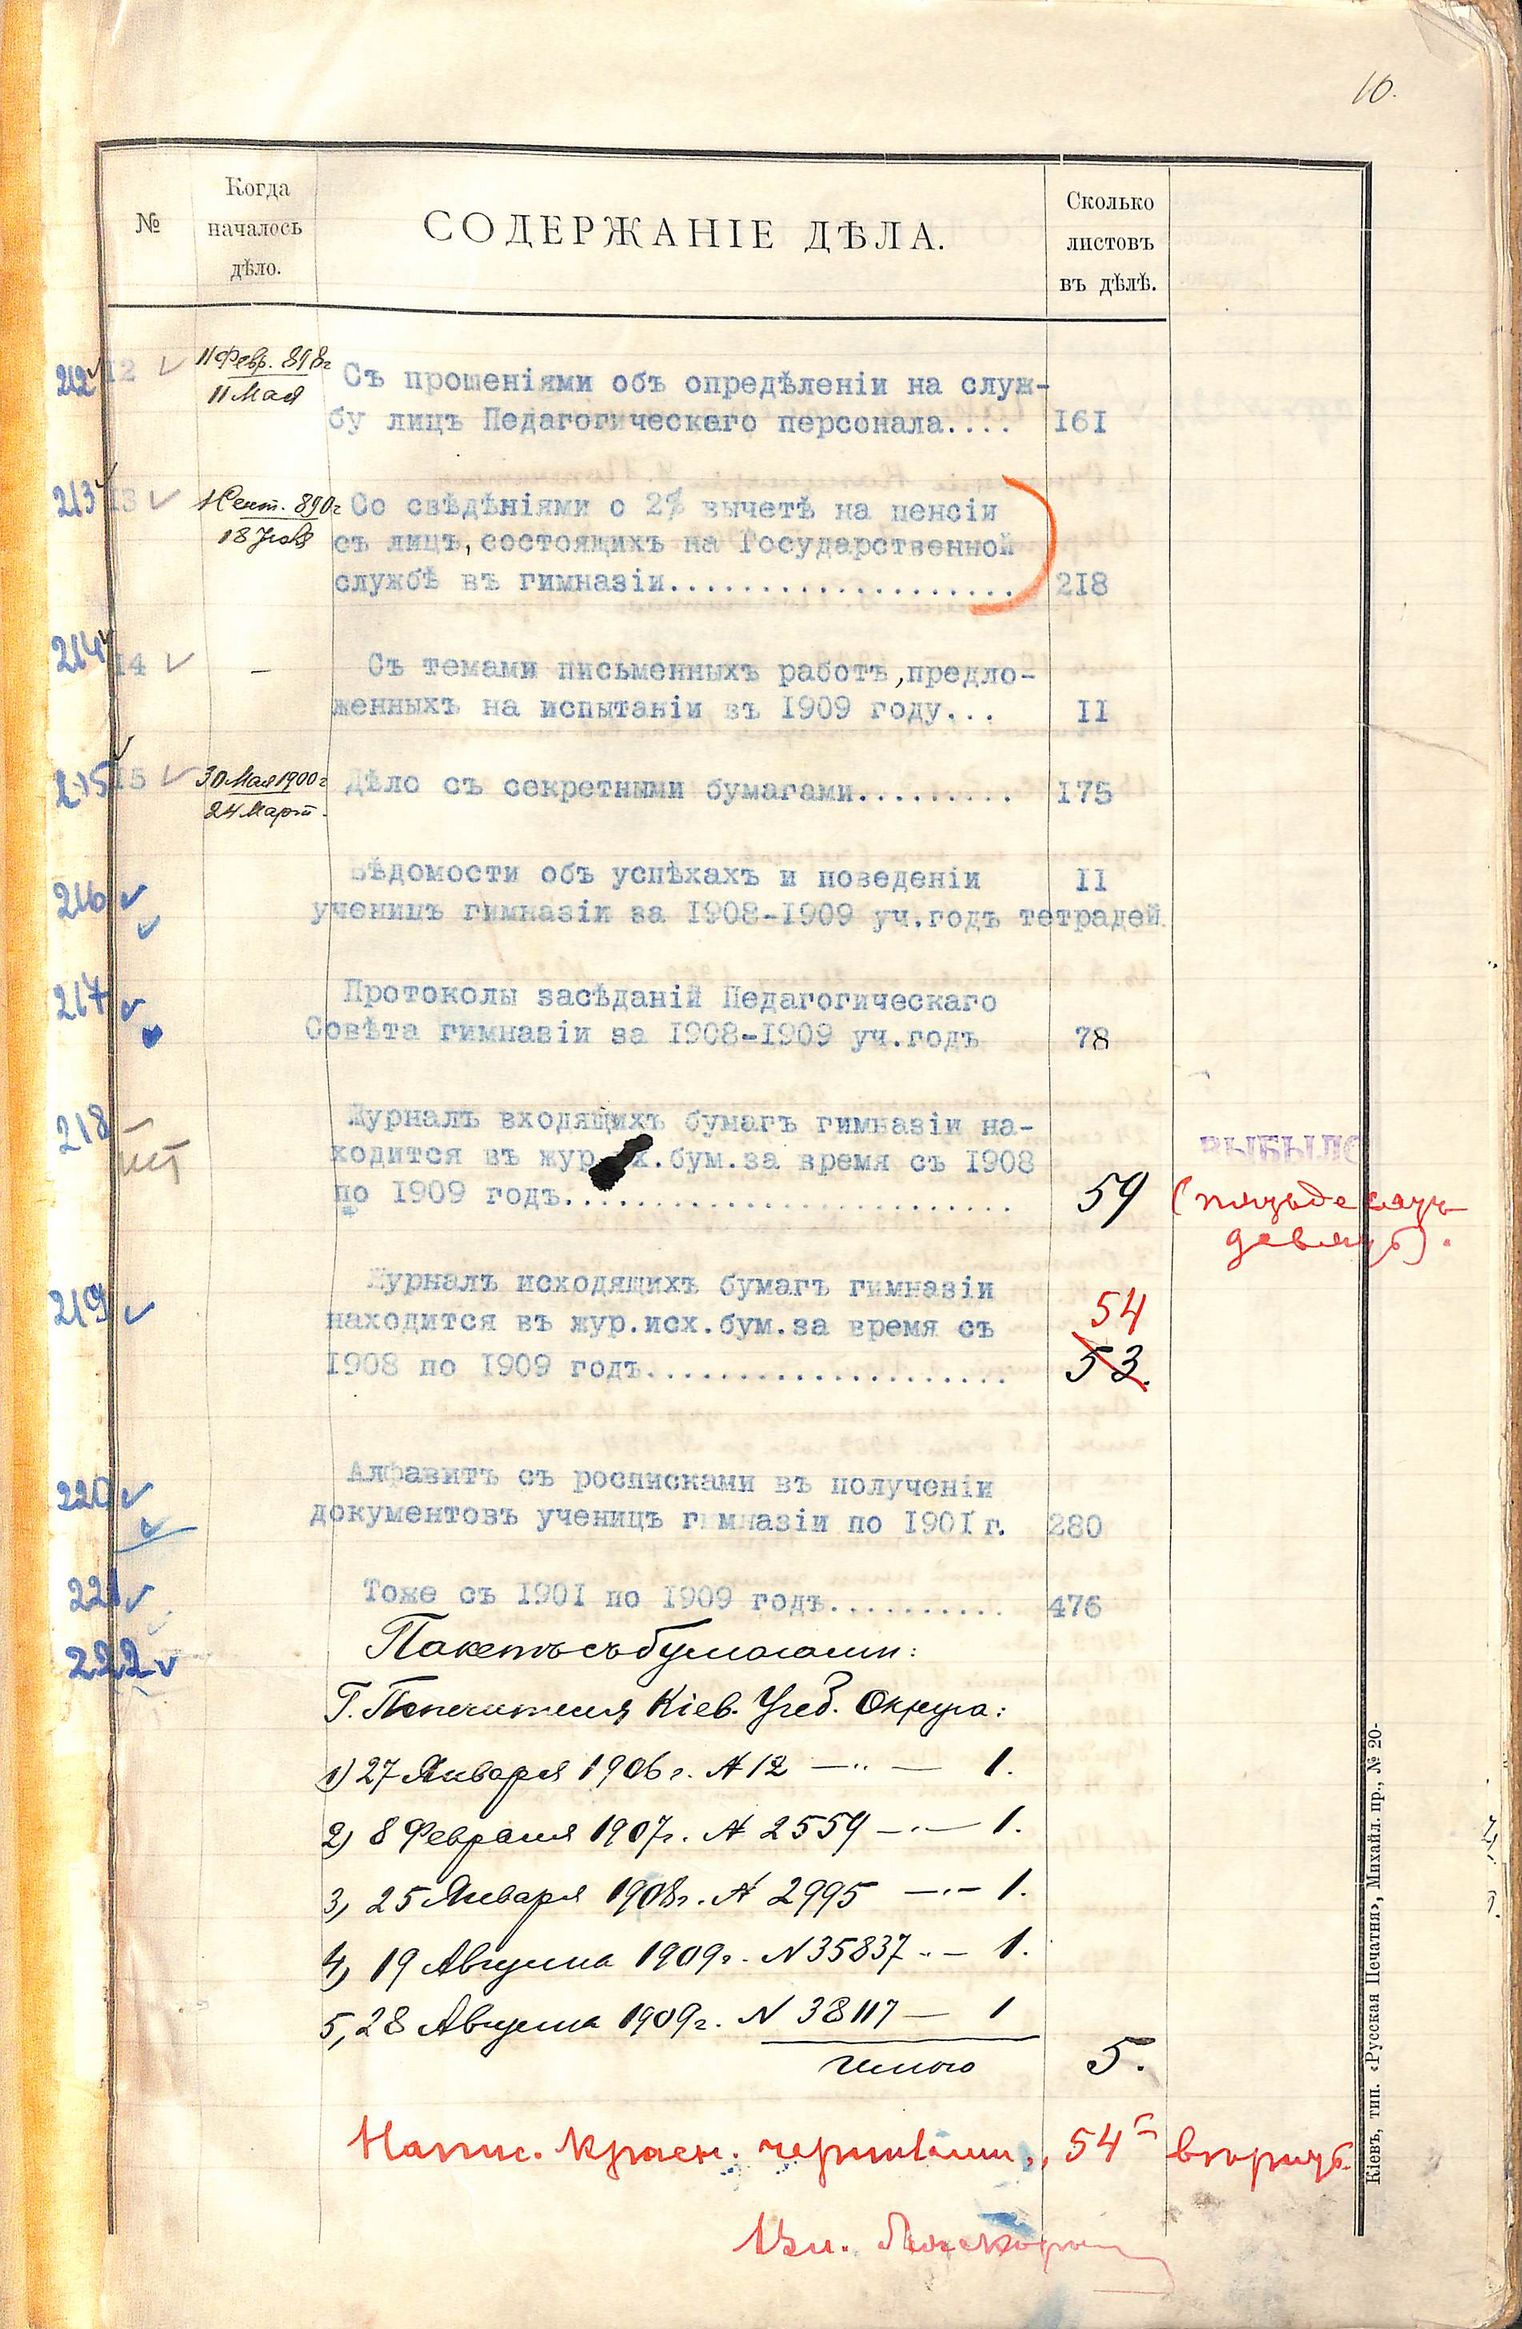 10.
№
Когда
началось
дѣло.
СОДЕРЖАНІЕ ДѢЛА.
Сколько
листовъ
въ дѣлѣ.
212 12
11 Февр. 898г
11 Мая
Съ прошеніями объ опредѣленіи на служ-
бу лицъ Педагогическаго персонала.... 161
213 13
18
Со свѣдѣніями о 2% вычетѣ на пенсіи
съ лицъ, состоящихъ на Государственной
службѣ въ гимназіи.................... 218
214 14 —
Съ темами письменныхъ работъ,предло-
женныхъ на испытаніи въ 1909 году... II
215 15
30 Мая 1900г
24 Март.
Дѣло съ секретными бумагами......... 175
216
Вѣдомости объ успѣхахъ и поведеніи II
ученицъ гимназіи за 1908-1909 уч.годъ тетрадей.
217
Протоколы засѣданій Педагогическаго
Совѣта гимназіи за 1908-1909 уч.годъ 78
218
нѣт
Журналъ входящихъ бумагъ гимназіи на-
ходится въ жур. х.бум.за время съ 1908
по 1909 годъ......................... 59
ВЫБЫЛО
(пятьдесятъ
девять).
219
Журналъ исходящихъ бумагъ гимназіи
находится въ жур.исх.бум.за время съ
1908 по 1909 годъ....................
54
53.
220
Алфавитъ съ росписками въ полученіи
документовъ ученицъ гимназіи по 1901г. 280
221
Тоже съ 1901 по 1909 годъ.......... 476
222
Пакетъ съ бумагами:
Г. Попечителя Кіев. Учеб. Округа:
1) 27 Января 1906г. № 12 — 1.
2) 8 Февраля 1907г. № 2559 — 1.
3) 25 Января 1908г. № 2995 — 1.
4) 19 Августа 1909г. № 35837 — 1.
5) 28 Августа 1909г. № 38117 — 1
итого 5.
Напис. красн. чернилами „54" вѣрить
Кіевъ, тип. «Русская Печатня», Михайл. пр., № 20-